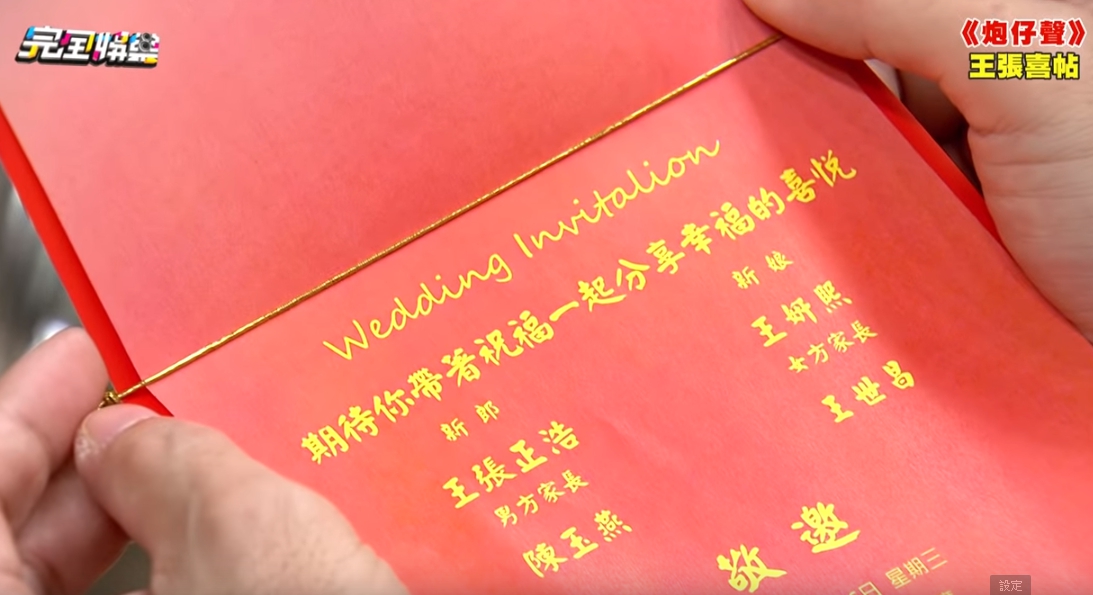 完全娛樂
《炮仔聲》
王張喜帖
Wedding Invitalion
期待你帶著祝福一起分享幸福的喜悅
新郎
王張正浩
男方家長
陳玉燕
新娘
王妍熙
女方家長
王世昌
敬邀
日 星期三
設定